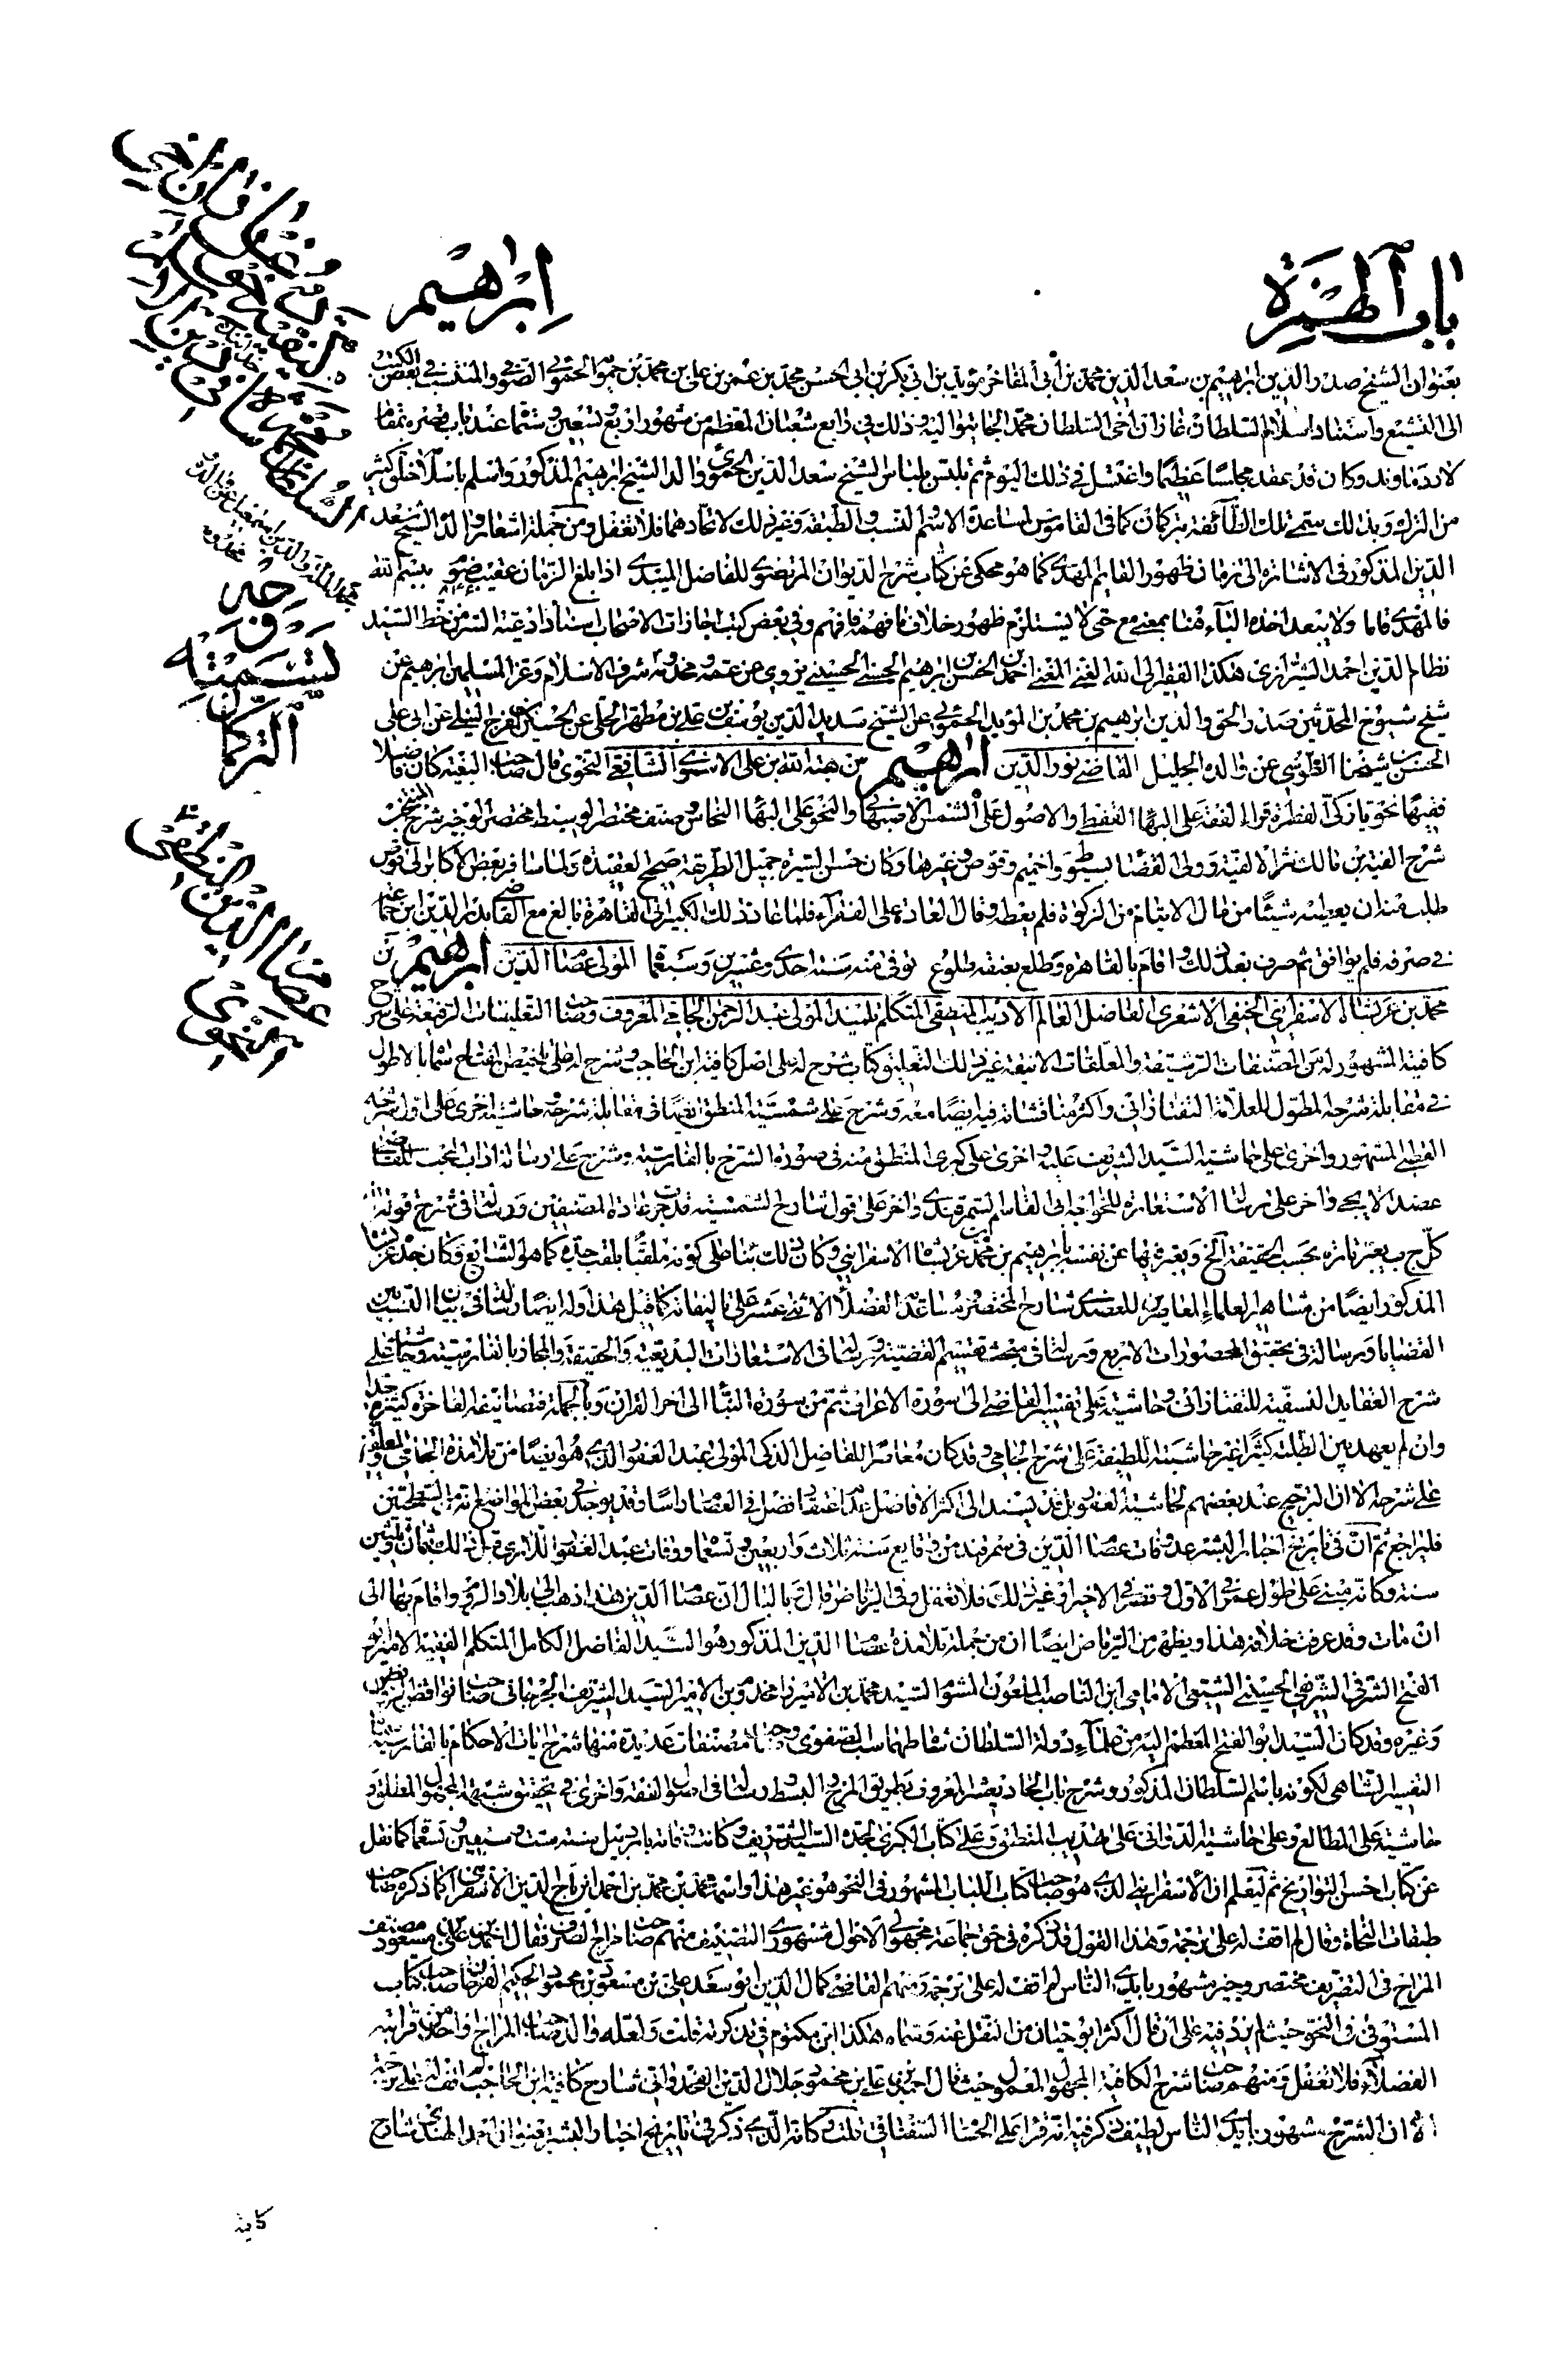 باب الهمزة
ابرهيم
بعنوان الشيخ صدر الدين ابرهيم بن سعد الدين محمد بن أبي المفاخر مؤيد بن ابي بكر بن ابي الحسن محمد بن عمر بن علي بن محمد بن حمويه الحموئى الصوفى والمنتسب فى بعض الكتب
الى التشيع واستناد اسلام السلطان غازان اخى السلطان محمد الجايتو اليه وذلك فى رابع شعبان المعظم من شهور اربع وتسعين وستمأة عند باب قصره بمقام
لار دماوند وكان قد عقد مجلسا عظيما واغتسل فى ذلك اليوم ثم تلبس بلباس الشيخ سعد الدين الحموى والد الشيخ ابرهيم المذكور واسلم باسلامه خلق كثير
من الترك وبذلك سميت تلك الطائفة بتركمان كما فى القاموس لمساعدة الاسم لنسب والطبقة وغير ذلك لاتحادهما فلا تغفل ومن جملة اشعار والده الشيخ سعد
الدين المذكور فى الاشارة الى زمان ظهور القايم المهدى كما هو محكى عن كتاب شرح الديوان المرتضوى للفاضل الميبدى اذا بلغ الزمان عقيب صوم ببسم الله
فالمهدى قاما ولا يبعد اخذ الباء هنا بمعنى مع حتى لا يستلزم ظهور خلاف ما فهمه فافهم وفى بعض كتب اجازات الاصحاب اسنادا دعية السر من خط السيد
نظام الدين احمد الشيرازى هكذا الفقير الى الله الغنى المغنى احمد بن الحسن بن ابرهيم الحسنى الحسينى يروى عن عمه ومخدومه شرف الاسلام وعز المسلمين ابرهيم عن
شيخ شيوخ المحدثين صدر الحق والدين ابرهيم بن محمد بن المؤيد الحموئى عن الشيخ سديد الدين يوسف بن على بن مطهر الحلى عن الحسين بن الفرج النيلى عن ابى على
الحسن بن شيخنا الطوسى عن والده الجليل القاضى نور الدين ابرهيم بن هبة الله بن على الاسنوى الشافعى النحوى قال صاحب البغية كان فاضلا
فقيها نحويا زكى الفطرة قرا الفقه على البهاء القفطى والاصول على الشمس الاصبهانى والنحو على البهاء النحاس وصنف مختصر الوسيط مختصر الوجيز شرح المنتخب
شرح الفية بن مالك نثر الالفية وولى القضا بسيوط واخميم وقوص وغيرها وكان حسن السيرة جميل الطريقة صحيح العقيدة ولما سافر بعض الاكابر الى قوص
طلب منه ان يعطيه شيئا من مال الايتام من الزكوة فلم يعطه وقال العادة على الفقراء فلما عاد ذلك الكبير الى القاهرة بالغ مع القاضى بدر الدين ابن جماعة
فى صرفه فلم يوافق ثم صرف بعد ذلك واقام بالقاهرة وطلع بعنقه طلوع توفى منه سنة احدى وعشرين وسبعمأة المولى عصام الدين ابرهيم بن
محمد بن عربشاه الاسفراينى الحنفى الاشعرى الفاضل العالم الاديب المنطقى المتكلم تلميذ المولى عبد الرحمن الجامى المعروف وصاحب التعليقات الرفيعة على شرح
كافيته المشهور له من المصنفات الرشيقة والمعلقات الانيقة غير ذلك التعليق كتاب شرح له على اصل كافية ابن الحاجب وشرح له على تلخيص المفتاح سماه بالاطول
فى مقابلة شرحه المطول للعلامة التفتازانى واكثر مناقشاته فيه ايضا معه وشرح على شمسية المنطق ايضا فى مقابلة شرحه وحاشية اخرى على اول شرحه
القطبى المشهور واخرى على حاشية السيد الشريف عليه واخرى على كبرى المنطق منه فى صورة الشرح بالفارسية وشرح على رسالة اداب البحث للقاضى
عضد الايجى واخر على رسالة الاستعارة للخواجه ابى القاسم السمرقندى واخر على قول شارح الشمسية قد جرت عادة المصنفين ورسالة فى شرح قوله
كل ج ب يعتبر تارة بحسب الحقيقة الخ ويعبر فيها عن نفسه بابرهيم بن محمد بن عربشاه الاسفراينى وكان ذلك بناء على كونه ملقبا بلقب جده كما هو الشايع وكان جده عربشاه
المذكور ايضا من مشاهير العلماء المعاصرين للعضدى شارح المختصر مساعد الفضلاء الاثنى عشر على تاليفاته كما قيل هذا وله ايضا رسالة فى بيان النسب بين
القضايا ورسالة فى تحقيق المحصورات الاربع ورسالة فى مبحث تقسيم القضية ورسالة فى الاستعارات البديعية والحقيقة والمجاز بالفارسية وحاشية على
شرح العقايد النسفية للتفتازانى وحاشية على تفسير القاضى الى سورة الاعراف ثم من سورة النبأ الى اخر القرآن وبالجملة فتصانيفه الفاخرة كثيرة جدا
وان لم يعهد بين الطلبة كثيرا غير حاشيته اللطيفة على شرح الجامى وقد كان معاصرا للفاضل الذكى المولى عبد الغفور الذى هو ايضا من تلامذة الجامى والمعلقين
على شرحه الا ان الترجيح عند بعضهم لحاشية الغفور بل قد يسند الى اكثر الافاضل عدم اعتقاد فضل فى العصام راسا وقد يوجد فى بعض المواضع انه
فليراجع ثم ان فى تاريخ اخبار البشر عد وفات عصام الدين فى سمرقند من وقايع سنة ثلاث واربعين وتسعمأة ووفات عبد الغفور اللارى قبل ذلك بثمان وثلثين
سنة وكانه مبنى على طول عمر الاول وقصر فى الاخير او غير ذلك فلا تغفل وفى الرياض قال فى البال ان عصام الدين هذا ذهب الى بلاد الروم واقام بها الى
ان مات وقد عرفت خلافه هذا ويظهر من الرياض ايضا ان من جملة تلامذة عصام الدين المذكور هو السيد الفاضل الكامل المتكلم الفقيه الامير ابو
الفتح الشرفى الشريفى الحسينى الشيعى الامامى ابن الناصب الملعون المشوم السيد محمد بن الامير مخدوم بن الامير السيد الشريف الجرجانى صاحب نواقض الروافض
وغيره وقد كان السيد ابو الفتح المعظم اليه من علماء دولة السلطان شاه طهماسب الصفوى وصاحب مصنفات عديدة منها شرح ايات الاحكام بالفارسية
التفسير الشاهى لكونه باسم السلطان المذكور وشرح باب الحاديعشر المعروف بطريق المزج والبسط ورسالة فى اصول الفقه واخرى فى تحقيق شبهة المجهول المطلق و
حاشية على المطالع وعلى حاشية الدوانى على تهذيب المنطق وعلى كتاب الكبرى لجده السيد الشريف وكانت وفاته باردبيل سنة ست وسبعين وتسعمأة كما نقل
عن كتاب احسن التواريخ ثم ليعلم ان الاسفراينى الذى هو صاحب كتاب اللباب المشهور فى النحو هو غير هذا واسمه محمد بن محمد بن احمد ابن تاج الدين الاسفراينى كما ذكره صاحب
طبقات النحاة وقال لم اقف له على ترجمة وهذا القول قد ذكره فى حق جماعة مجهولى الاحوال مشهورى التصنيف منهم صاحب مراح الصرف قال احمد بن على بن مسعود مصنف
المراح فى التصريف مختصر وجيز مشهور بايدى الناس لم اقف له على ترجمة ومنهم القاضى كمال الدين ابو سعد على بن مسعود بن محمود بن الحكيم الفرخان صاحب كتاب
المستوفى فى النحو حيث لم يزد فيه على ان قال اكثر ابو حيان من النقل عنه وسماه هكذا ابن مكتوم فى تذكرته قلت ولعله والد صاحب المراح واحد من قرابته
الفضلاء فلا تغفل ومنهم صاحب شرح الكافية المجهول المعمول حيث قال احمد بن على بن محمود جلال الدين الغجدوانى شارح كافية ابن الحاجب لم اقف له على ترجمة
الا ان الشرح مشهور بايدى الناس لطيف ذكر فيه انه قرا على الحسام السغناقى قلت وكانه الذى ذكر فى تاريخ اخبار البشر فقيه ان احمد الهندى شارح
كافية
وجه
لتسميته
التركمان
عصام الدين المنطقى
النحوى